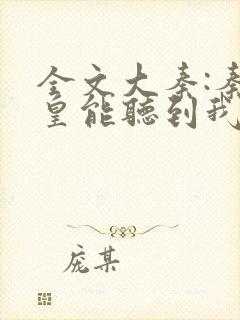 全文大秦:秦
皇能聽到我
庞某